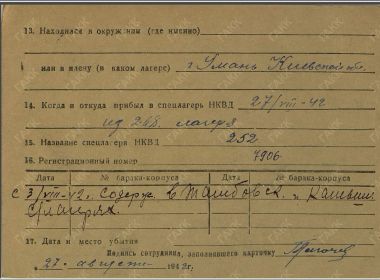 13. Находился в окружении (где именно)
или в плену (в каком лагере) г. Умань Киевской обл.
14. Когда и откуда прибыл в спецлагерь НКВД 27/VIII-42
из лагеря
15. Название спецлагеря НКВД 252
16. Регистрационный номер 7906
Дата № барака-корпуса Дата № барака-корпуса
с 3/VIII-42г. Содерж. в Тамбовск. и
с/лагерях.
17. Дата и место убытия
Подпись сотрудника, заполнявшего карточку
27 августа 1942г.